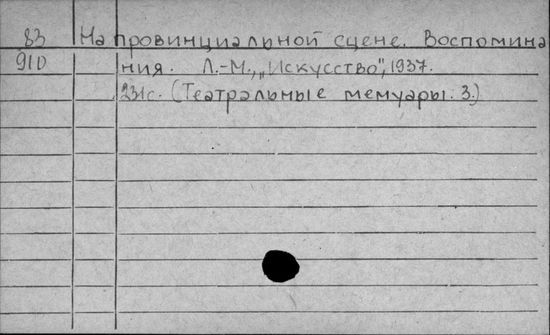 83 На провинциальной сцене. Воспомина
910 ния. Л.-М., „Искусство", 1937.
231с. (Театральные мемуары. 3.)